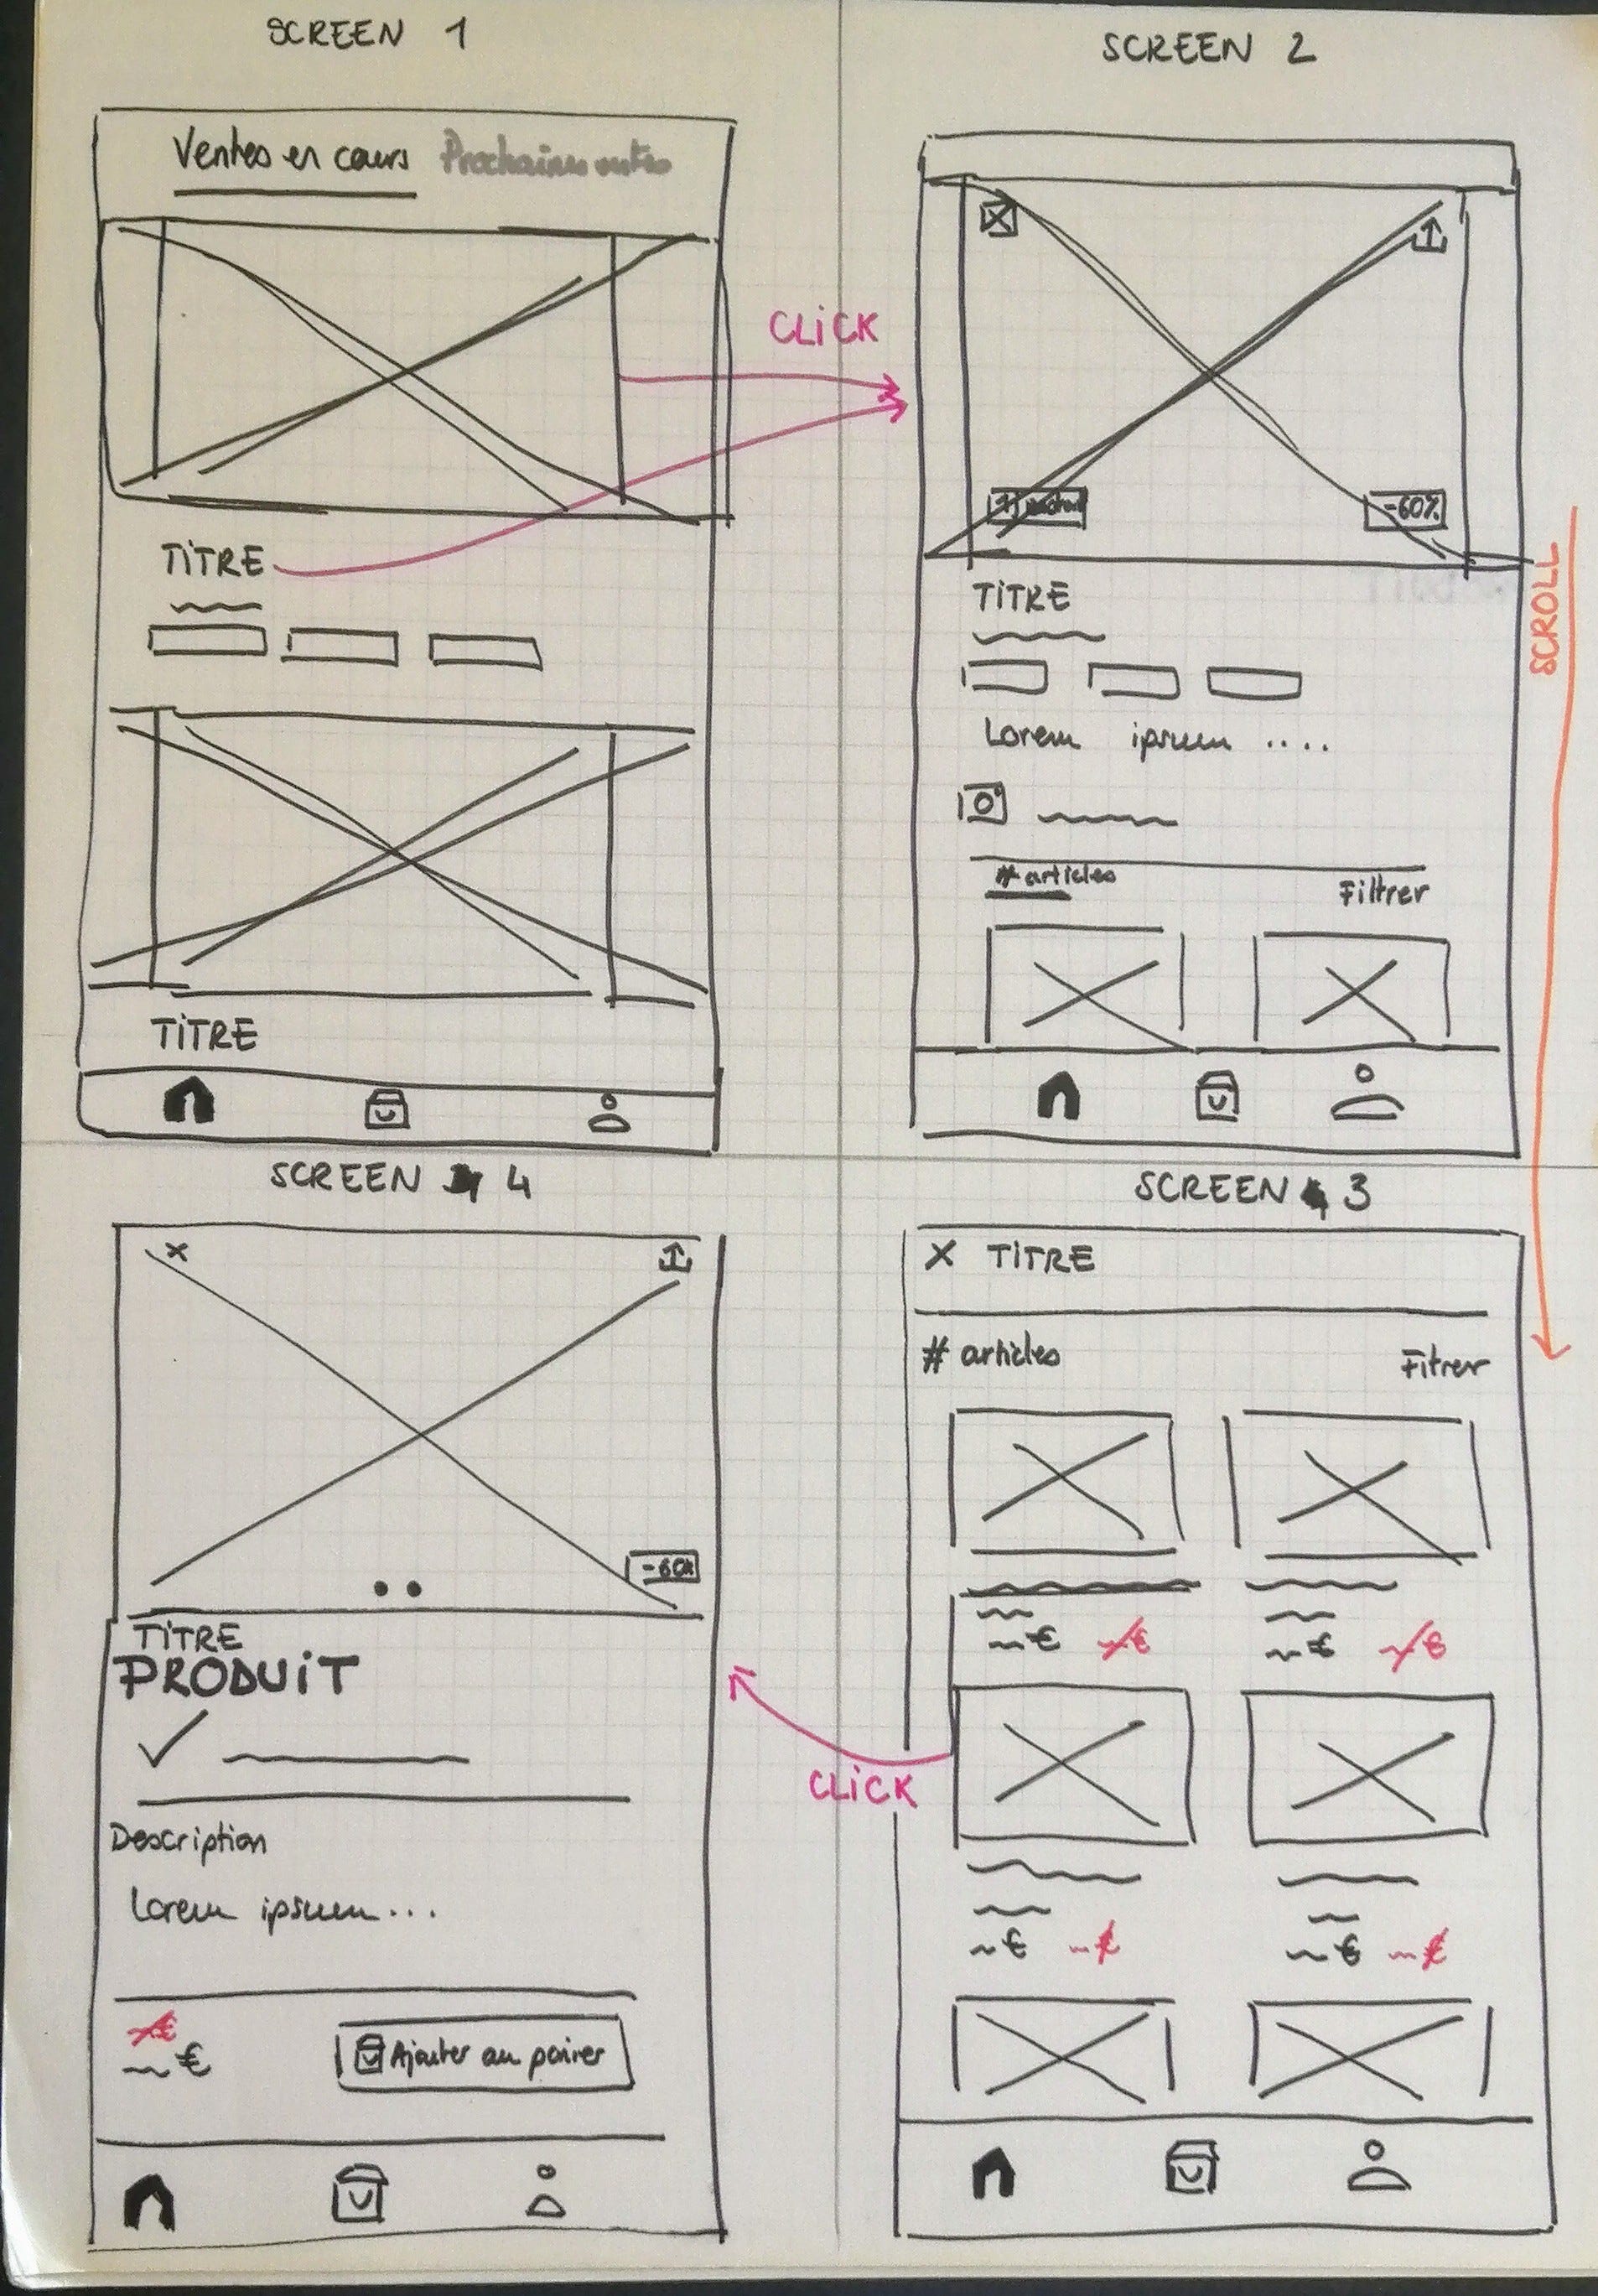 SCREEN 1
Ventes en cours Prochaines ventes
TITRE
TITRE
CLICK
SCREEN 2
-60%
TITRE
Lorem ipsum ....
# articles Filtrer
SCROLL
SCREEN 3
X TITRE
# articles Fitrer
~€ ~€ ~€ ~€
~€ ~€ ~€ ~€
CLICK
SCREEN 4
x
-60%
TITRE
PRODUIT
Description
Lorem ipsum...
~€
~€
Ajouter au panier